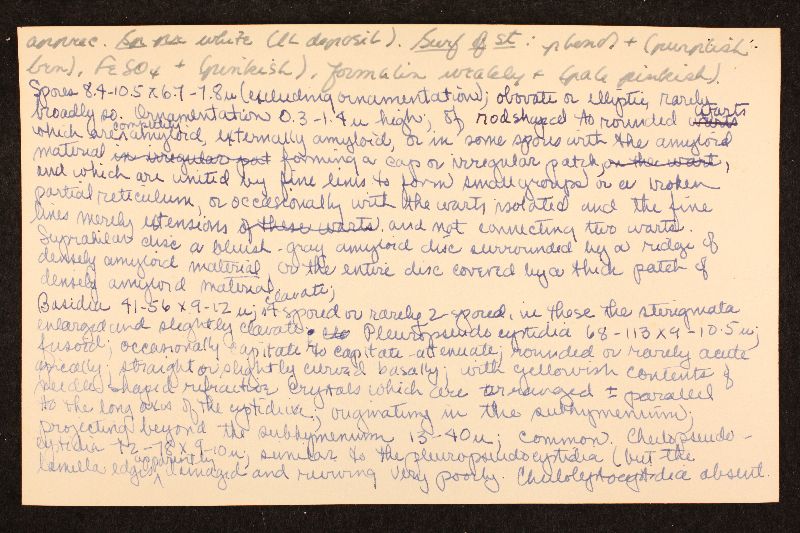 apprec. white (in deposit). Surf of st: phenol + (purplish-
brn), FeSO4 + (pinkish), formalin weakly + (pale pinkish).
Spores 8.4-10.5 x 6.7-7.8 u (excluding ornamentation); obovate or elliptic, rarely
broadly so. Ornamentation 0.3-1.4 u high; of rodshaped to rounded warts warts
which are completely amyloid, externally amyloid, or in some spores with the amyloid
material in irregular pat forming a cap or irregular patch, on the wart,
and which are united by fine lines to form small groups or a broken
partial reticulum, or occasionally with the warts isolated and the fine
lines merely extensions of these warts and not connecting two warts.
Suprahilar disc a bluish-gray amyloid disc surrounded by a ridge of
densely amyloid material, or the entire disc covered by a thick patch of
densely amyloid material.
Basidia 41-56 x 9-12 u; clavate; 4 spored or rarely 2-spored, in these the sterigmata
enlarged and slightly clavate. Pleuropseudocystidia 68-113 x 9-10.5 u;
fusoid; occasionally capitate to capitate-attenuate; rounded or rarely acute
apically; straight or slightly curved basally; with yellowish contents of
needle shaped refractive crystals which are arranged ± parallel
to the long axis of the cystidium; originating in the subhymenium;
projecting beyond the subhymenium 15-40 u; common. Cheilopseudo-
cystidia 42-78 x 9-10 u; similar to the pleuropseudocystidia (but the
lamella edges apparently damaged and reviving very poorly. Cheiloleptocystidia absent.